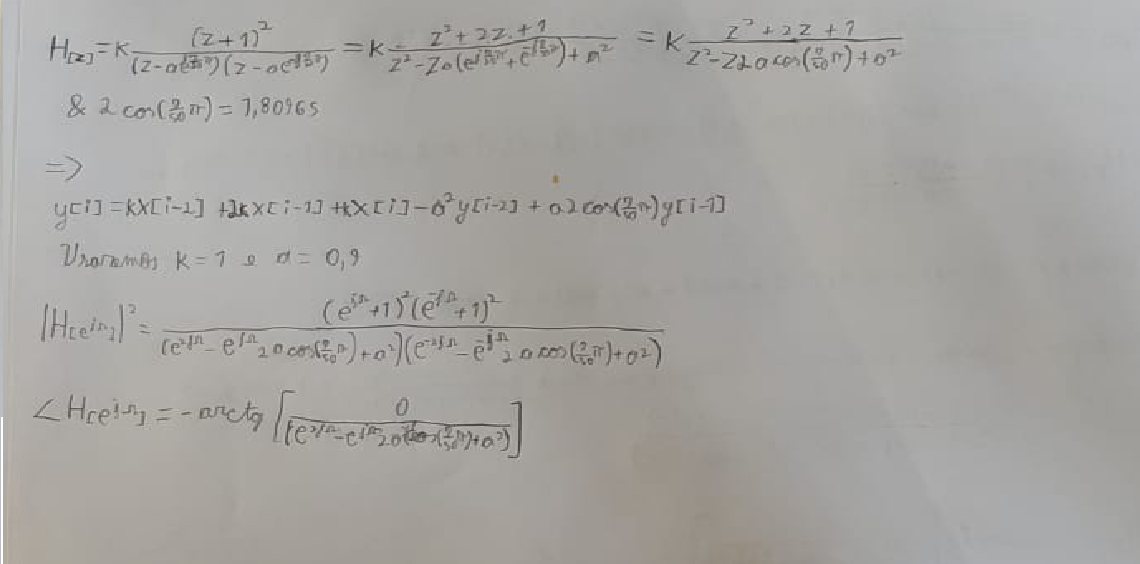 H[z] = K (z+1)² / (z-ae^{j(9/50)π})(z-ae^{-j(9/50)π}) = K z²+2z+1 / z²-za(e^{j(9/50)π}+e^{-j(9/50)π})+a² = K z²+2z+1 / z²-z2a cos(9/50 π)+a²
& 2 cos(9/50 π) = 1,80965
=>
y[i] = kx[i-2] + 2k x[i-1] + kx[i] - a² y[i-2] + a2 cos(9/50 π) y[i-1]
k = 1 e a = 0,9
|H[e^{jΩ}]|² = (e^{jΩ}+1)² (e^{-jΩ}+1)² / (e^{2jΩ} - e^{jΩ} 2a cos(9/50 π)+a²)(e^{-2jΩ} - e^{-jΩ} 2a cos(9/50 π)+a²)
∠H[e^{jΩ}] = -arctg [ 0 / (e^{2jΩ} - e^{jΩ} 2a cos(9/50 π)+a²) ]